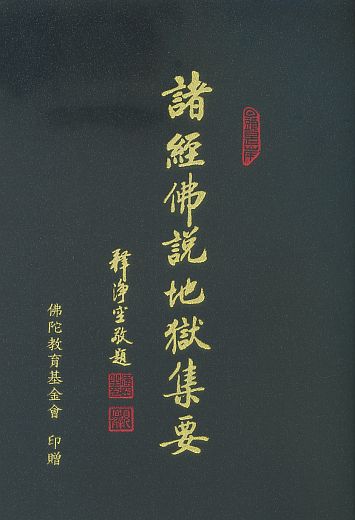 諸經佛說地獄集要
釋淨空敬題
佛陀教育基金會 印贈